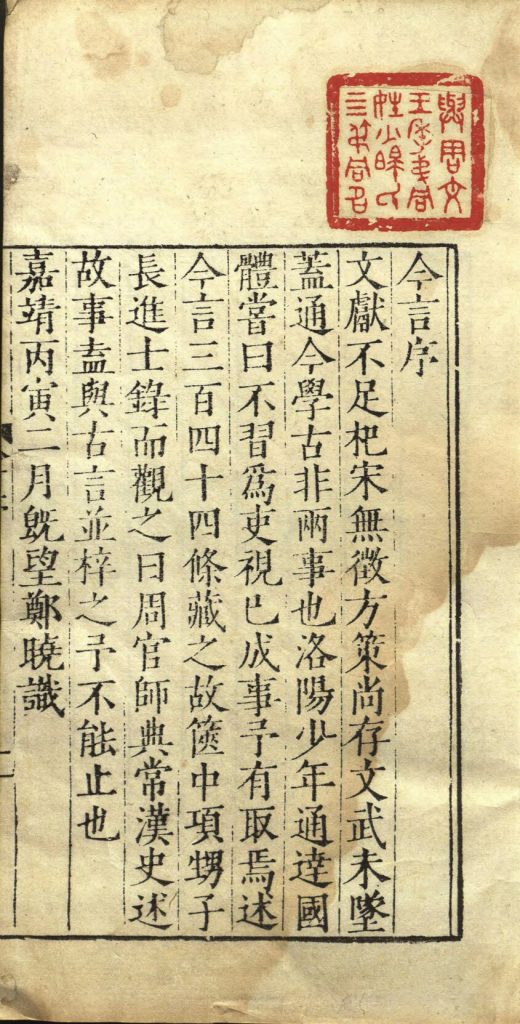 與周文
今言序
文獻不足杞宋無徵方策尚存文武未墜
蓋通今學古非兩事也洛陽少年通達國
體嘗曰不習爲吏視已成事予有取焉述
今言三百四十四條藏之故篋中項甥子
長進士錄而觀之曰周官師典常漢史述
故事盍與古言並梓之予不能止也
嘉靖丙寅二月旣望鄭曉識